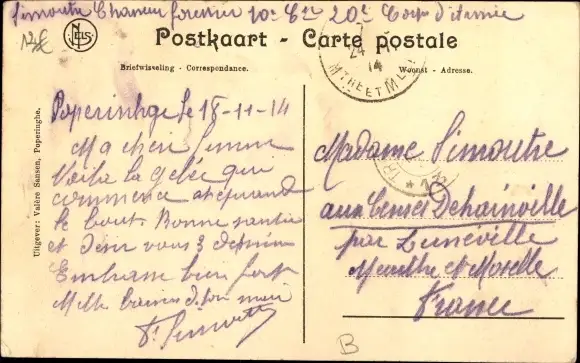 Simoutre Chasseur forestier 10e Cie 20e Corps d'armée
Postkaart - Carte postale
Briefwisseling - Correspondance.
Woonst - Adresse.
24
14
Poperinhge le 18-11-14
Ma chère femme
Voila la gelée qui
commence a
le bout. Bonne santée
et désir vous 3 de même
Embrasse bien fort
Mille baisers de ton mari
Simoutre
Madame Simoutre
aux Censes Dehainville
par Lunéville
Meurthe et Moselle
France
Uitgever: Valère Sansen, Poperinghe.
B